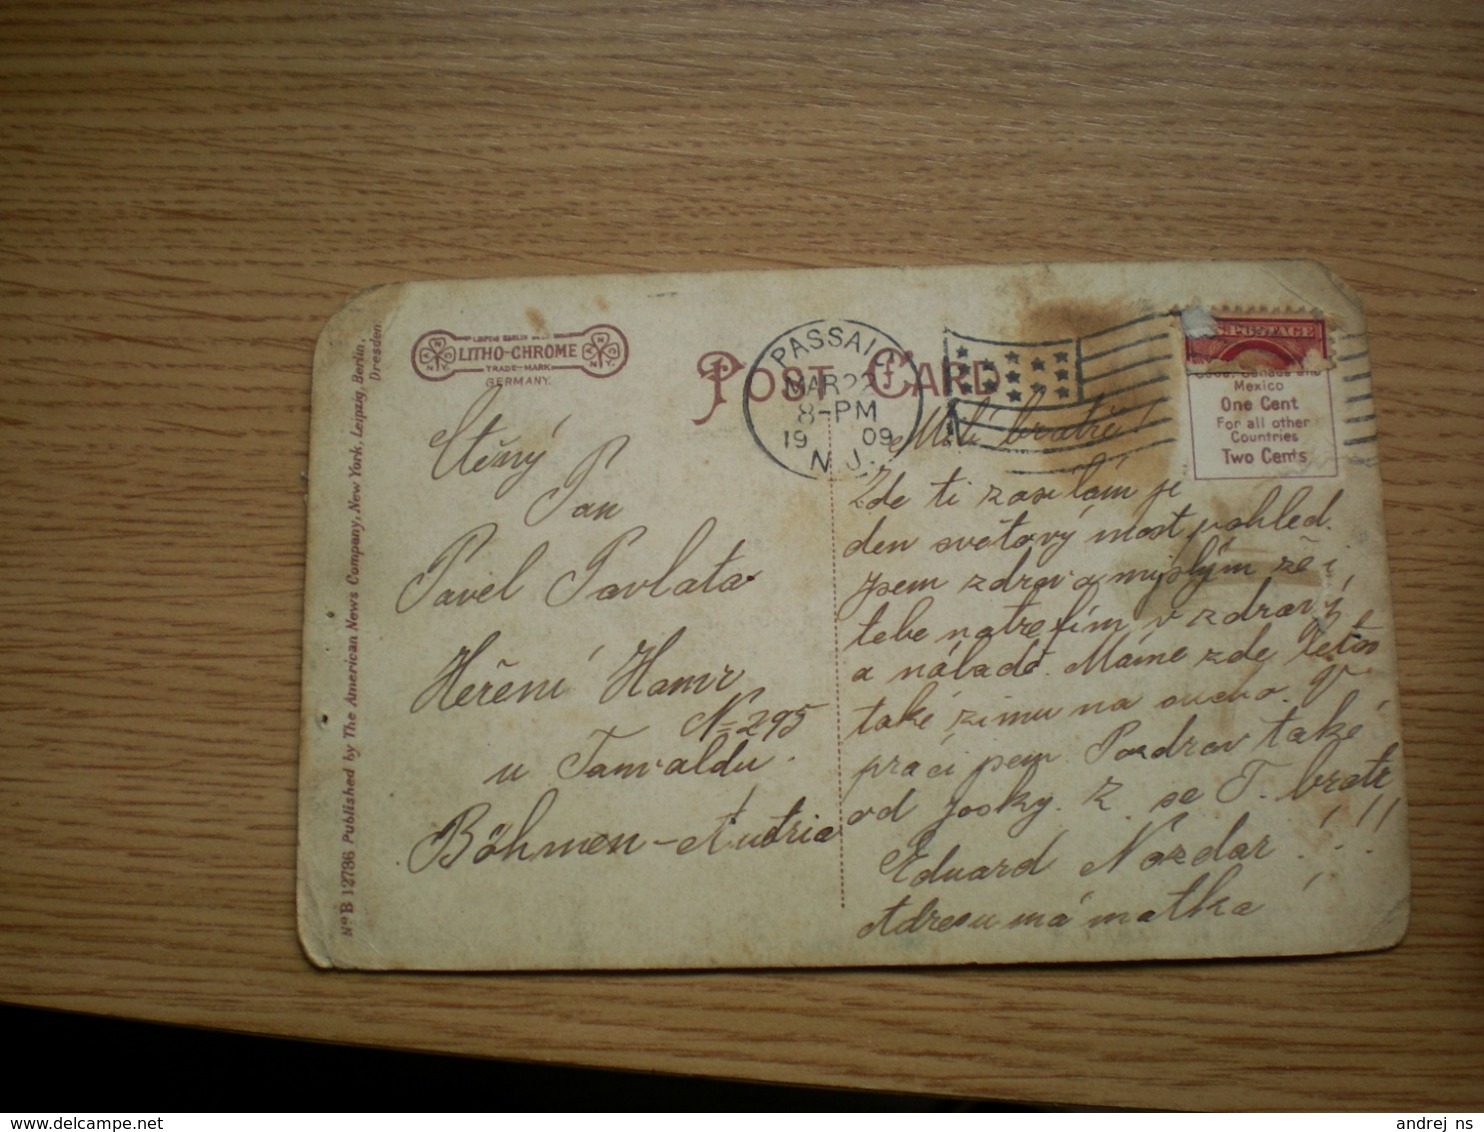 LITHO-CHROME
TRADE-MARK
GERMANY.
POST CARD
PASSAIC
MAR 22
8-PM
1909
N.J.
S. POSTAGE
Mexico
One Cent
For all other
Countries
Two Cents
NoB 12736 Published by The American News Company, New York, Leipzig, Berlin,
Dresden.
Ctěný
Pan
Pavel Pavlata
Hamr
No 295
u Tanvaldu.
Böhmen - Austria
Milí bratře!
Zde ti zasilám je
den světový most pohled.
jsem zdrav a myslým že i
tebe natrefím v zdraví
a náladě. Máme zde letos
také zimu na sucho. V
práci jsem. Pozdrav také
od Josky. Z se T. bratr
Eduard Nazdar!!!
Adresu má matka
andrej ns